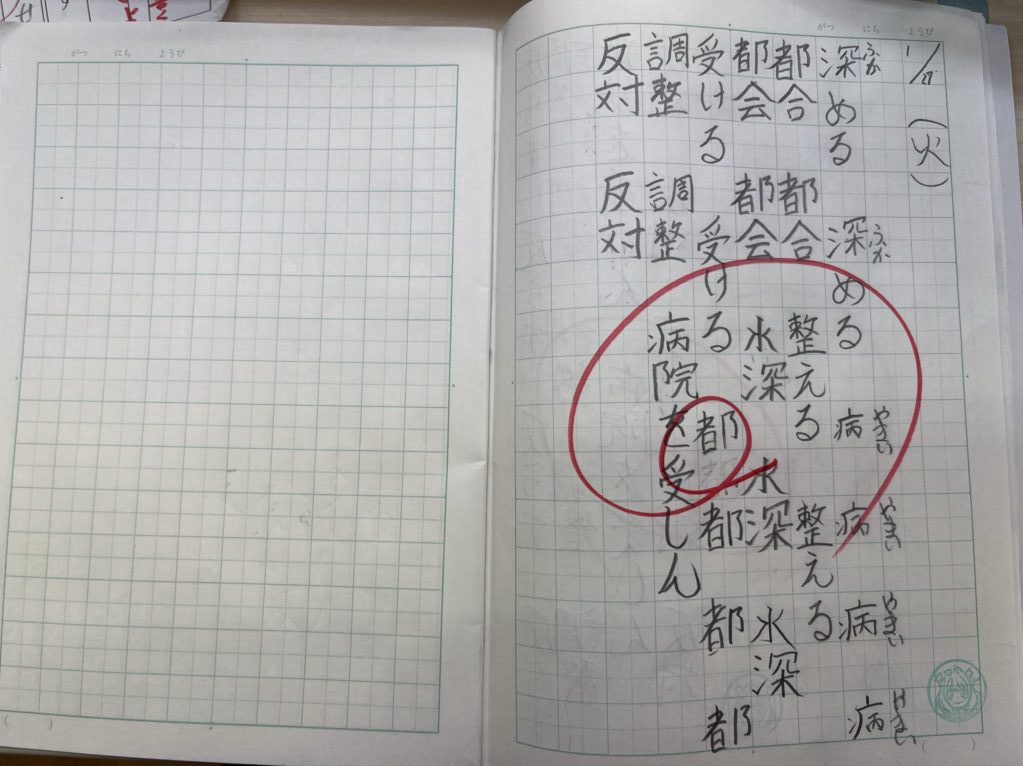 がつ にち ようび
1/27 (火)
ふか ふか やまい やまい やまい やまい
深める 深める 病 病 病 病
都合 都合 整える 整える
都会 都会 水深 水深 水深
受ける 受ける 都 都 都 都
調整 調整 病院を受しん
反対 反対
がつ にち ようび